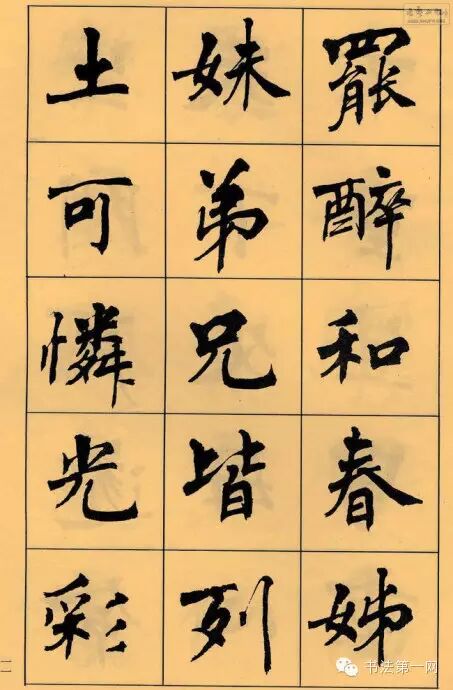 罷醉和春姊
妹弟兄皆列
土可憐光彩
书法第一网